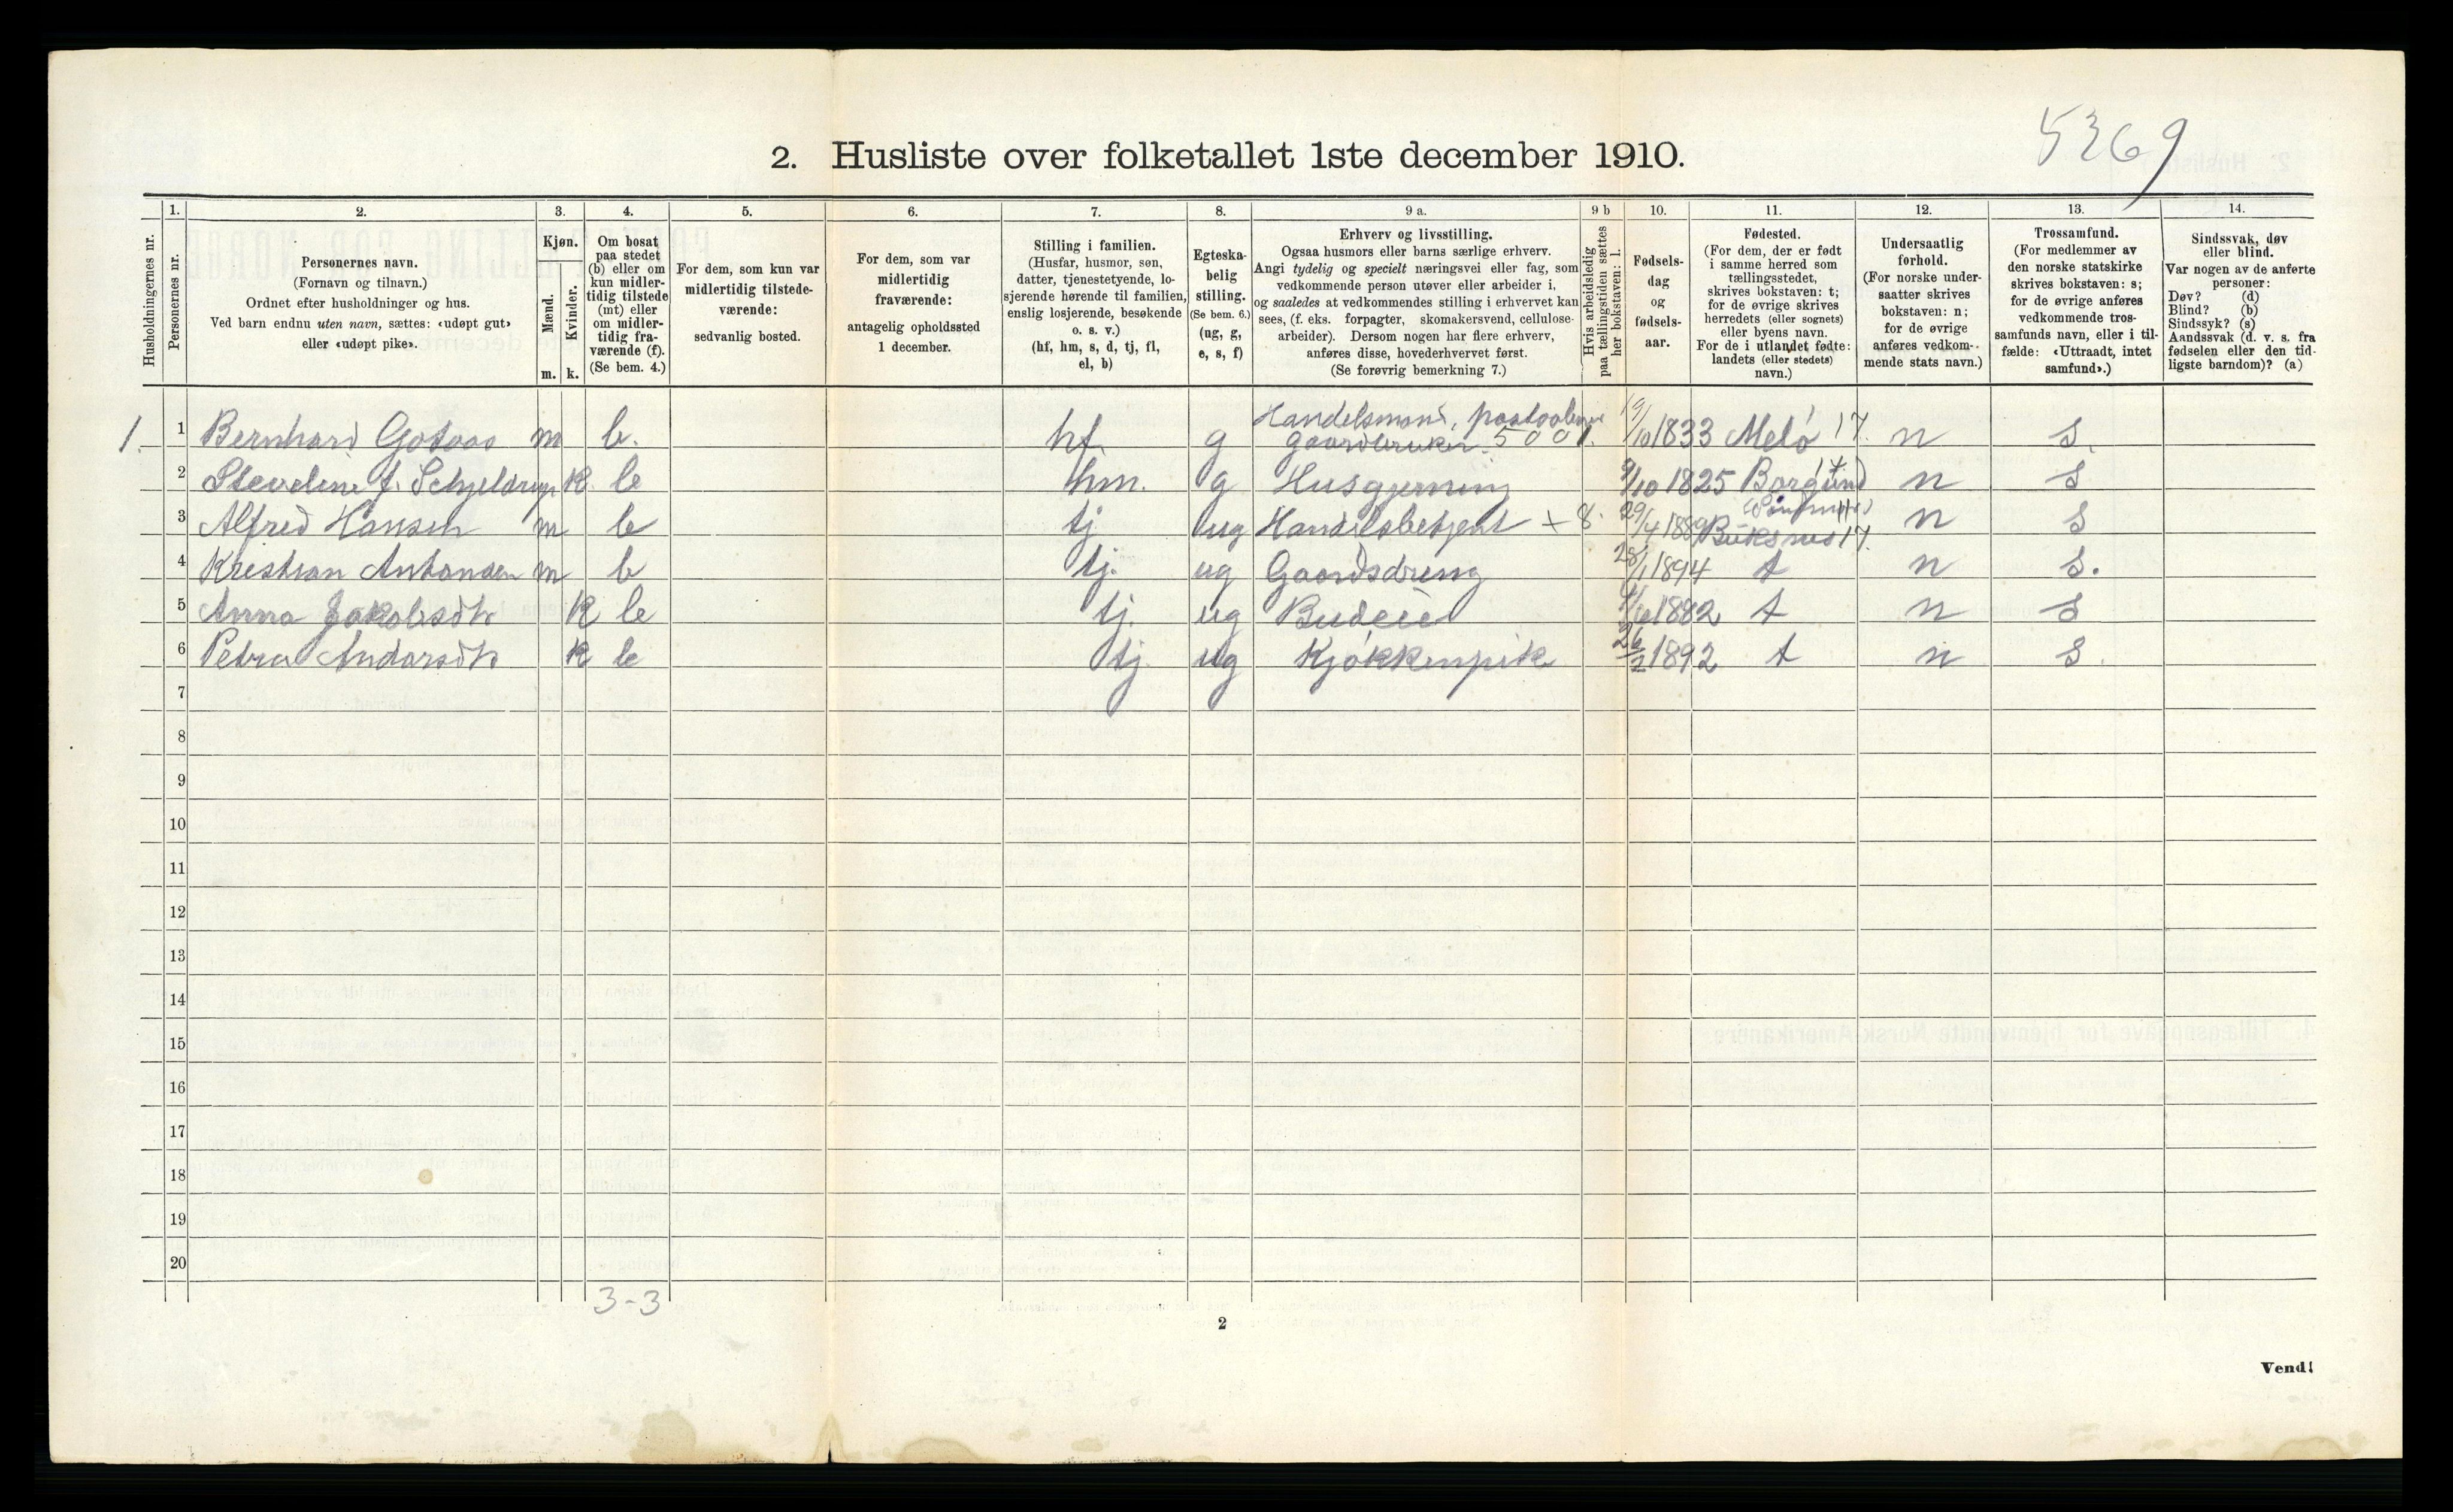 5369
2. Husliste over folketallet 1ste december 1910.
Husholdningernes nr.
1.
Personernes nr.
2.
Personernes navn.
(Fornavn og tilnavn.)
Ordnet efter husholdninger og hus.
Ved barn endnu uten navn, sættes: «udøpt gut»
eller «udøpt pike».
3.
Kjøn.
Mænd.
Kvinder.
m. k.
4.
Om bosat
paa stedet
(b) eller om
kun midler-
tidig tilstede
(mt) eller
om midler-
tidig fra-
værende (f).
(Se bem. 4.)
5.
For dem, som kun var
midlertidig tilstede-
værende:
sedvanlig bosted.
6.
For dem, som var
midlertidig
fraværende:
antagelig opholdssted
1 december.
7.
Stilling i familien.
(Husfar, husmor, søn,
datter, tjenestetyende, lo-
sjerende hørende til familien,
enslig losjerende, besøkende
o. s. v.)
(hf, hm, s, d, tj, fl,
el, b)
8.
Egteska-
belig
stilling.
(Se bem. 6.)
(ug, g,
e, s, f)
9 a.
Erhverv og livsstilling.
Ogsaa husmors eller barns særlige erhverv.
Angi tydelig og specielt næringsvei eller fag, som
vedkommende person utøver eller arbeider i,
og saaledes at vedkommendes stilling i erhvervet kan
sees, (f. eks. forpagter, skomakersvend, cellulose-
arbeider). Dersom nogen har flere erhverv,
anføres disse, hovederhvervet først.
(Se forøvrig bemerkning 7.)
9 b
Hvis arbeidsledig
paa tællingstiden sættes
her bokstaven: l.
10.
Fødsels-
dag
og
fødsels-
aar.
11.
Fødested.
(For dem, der er født
i samme herred som
tællingsstedet,
skrives bokstaven: t;
for de øvrige skrives
herredets (eller sognets)
eller byens navn.
For de i utlandet fødte:
landets (eller stedets)
navn.)
12.
Undersaatlig
forhold.
(For norske under-
saatter skrives
bokstaven: n;
for de øvrige
anføres vedkom-
mende stats navn.)
13.
Trossamfund.
(For medlemmer av
den norske statskirke
skrives bokstaven: s;
for de øvrige anføres
vedkommende tros-
samfunds navn, eller i til-
fælde: «Uttraadt, intet
samfund».)
14.
Sindssvak, døv
eller blind.
Var nogen av de anførte
personer:
Døv? (d)
Blind? (b)
Sindssyk? (s)
Aandssvak (d. v. s. fra
fødselen eller den tid-
ligste barndom)? (a)
Handelsmand,
1. 1 Bernhard Gotaas m b. hf. g gaardbruker. 5001. 19/10 1833 Melø 17. n s.
2 f. Schjeldrup k b hm. g Husgjerning 9/10 1825 Borgund n s
3 Alfred Hansen m b tj ug Handelsbetjent + 8. 29/4 1889 Buksnes 17. n s
4 Kristian Antonsen m b tj. ug Gaardsdreng 28/1 1894 t n s.
5 Anna Jakobsdtr k b tj. ug Budeie 1882 t n s
6 Petra Andorsdtr k b tj ug Kjøkkenpik 26/2 1892 t n s.
7
8
9
10
11
12
13
14
15
16
17
18
19
20
3-3
2
Vend!